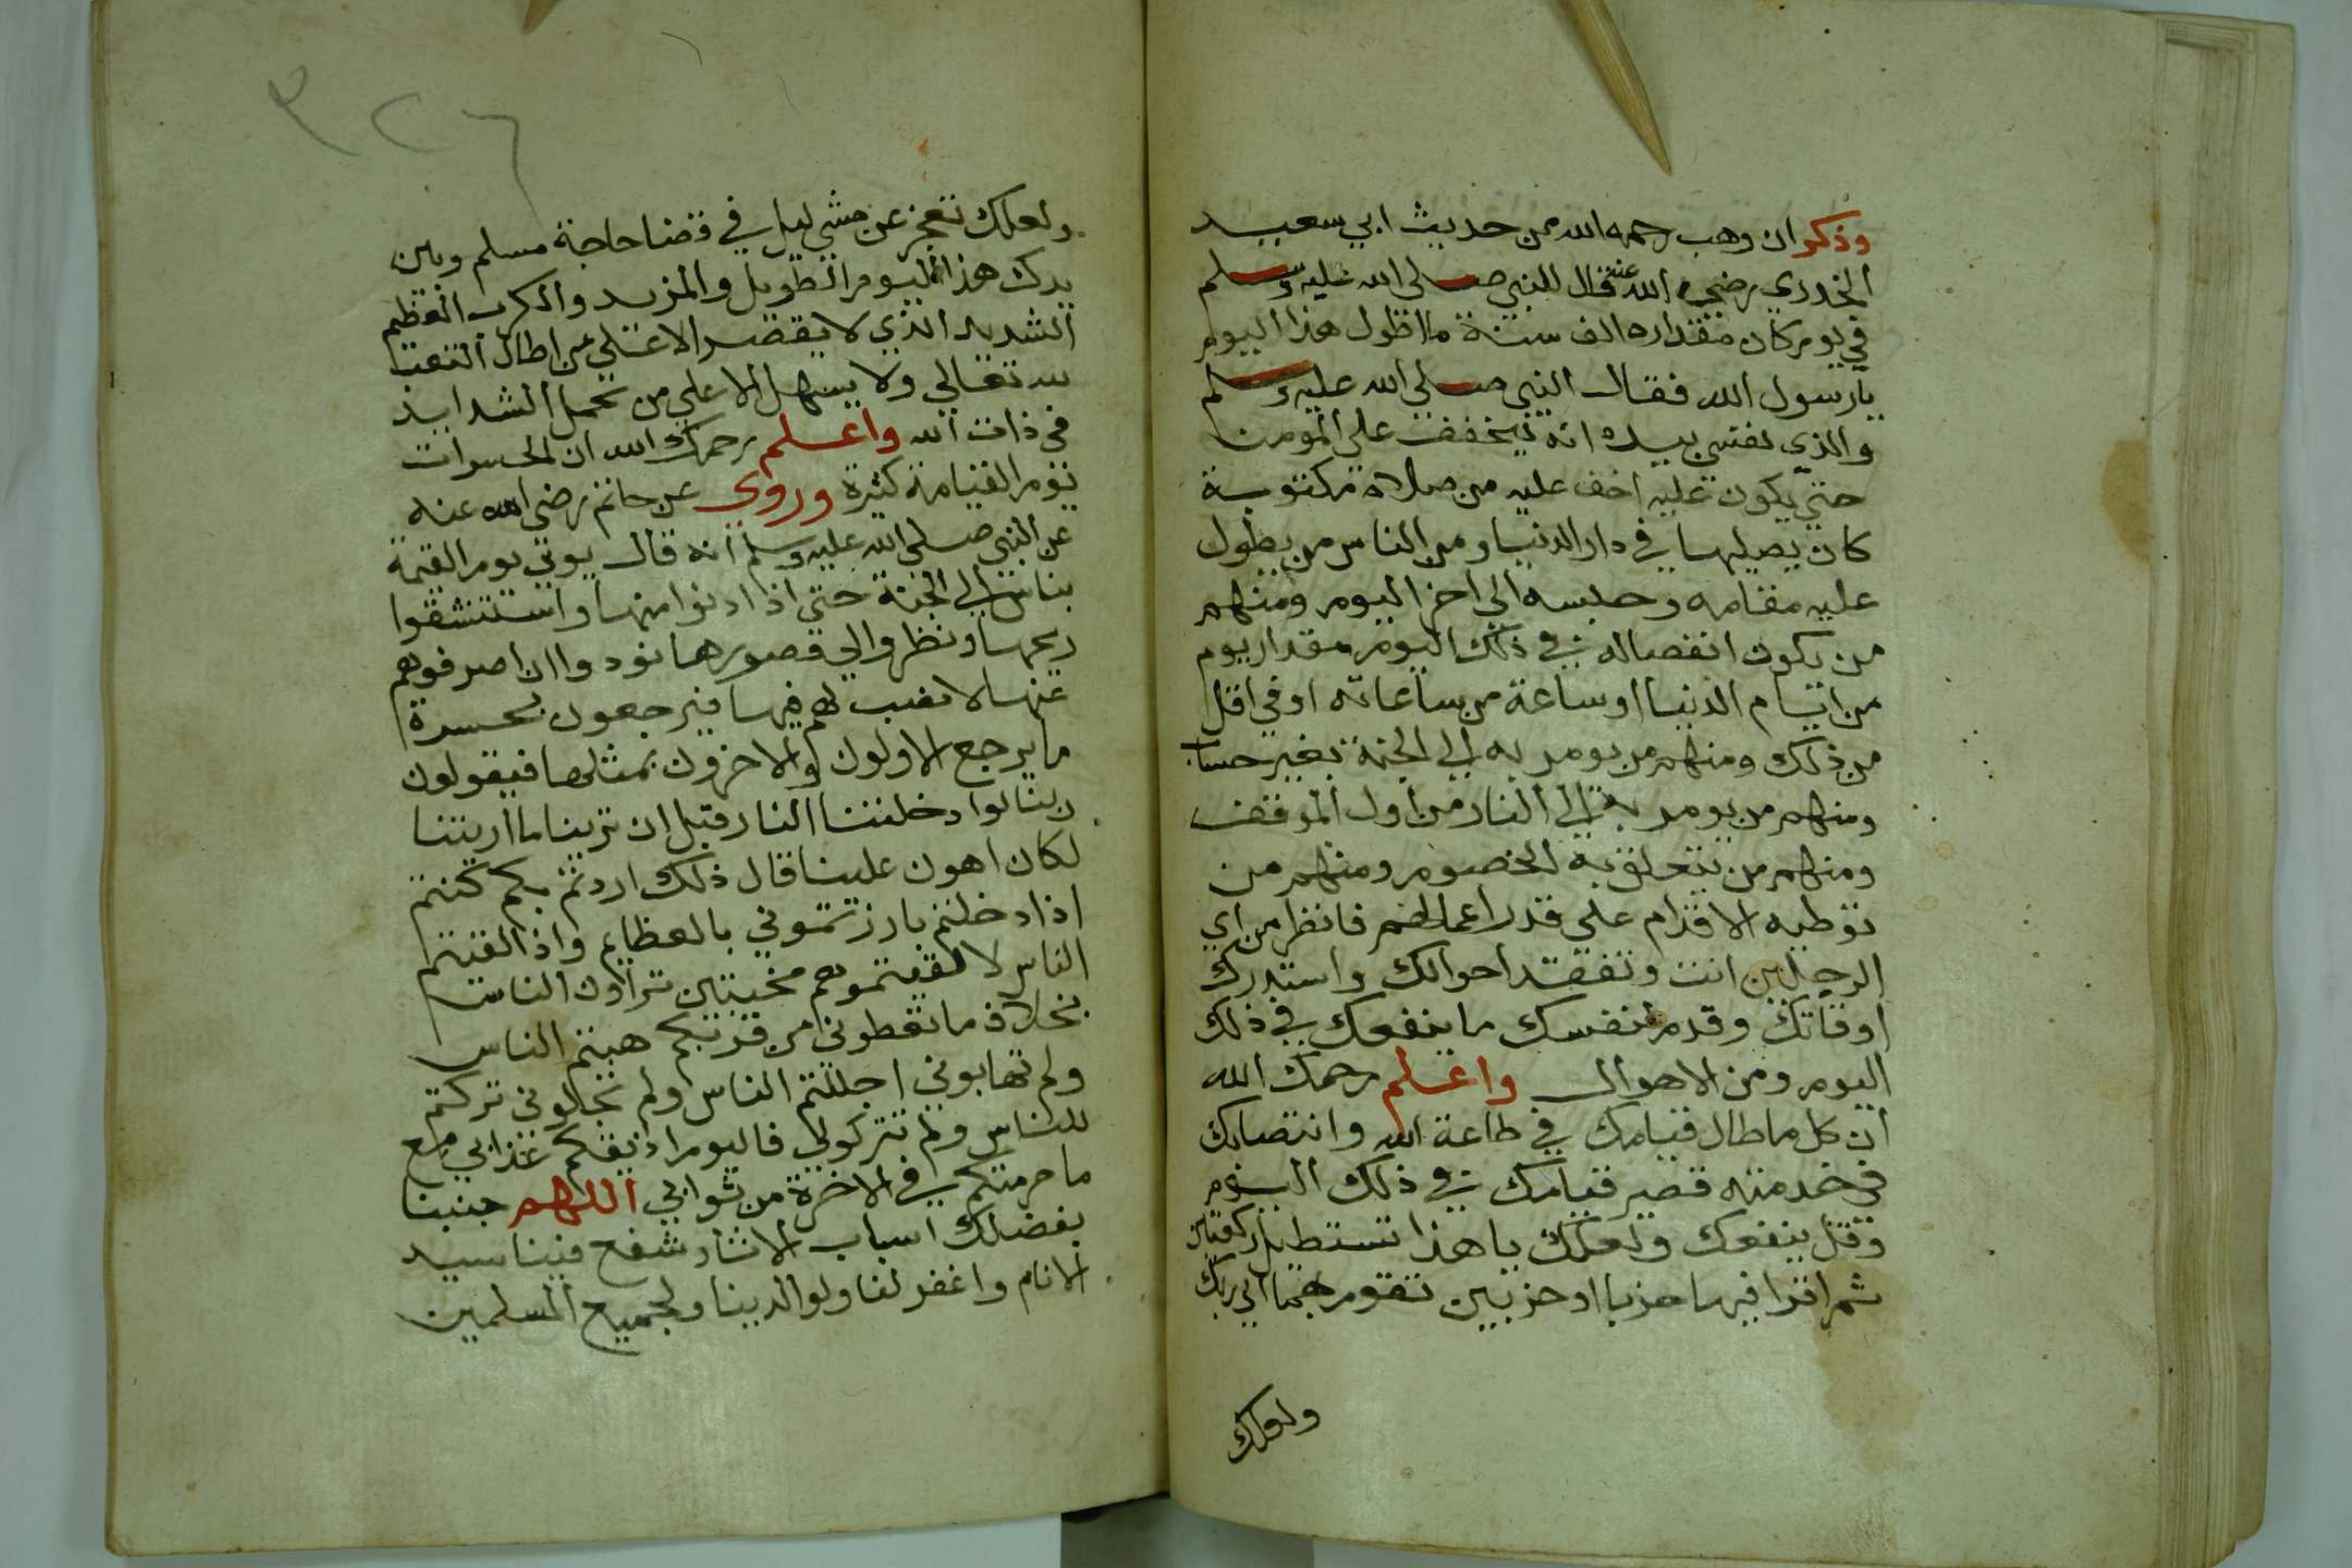 وذكر ان وهب رحمه الله من حديث ابي سعيد
الخدري رضي الله عنه قال للنبي صلى الله عليه وسلم
في يوم كان مقداره الف سنة ما اطول هذا اليوم
يا رسول الله فقال النبي صلي الله عليه وسلم
والذي نفسي بيده انه ليخفف على المومن
حتي يكون عليه اخف عليه من صلاة مكتوبة
كان يصليها في دار الدنيا ومن الناس من يطول
عليه مقامه وحبسه الي اخر اليوم ومنهم
من يكون انفصاله في ذلك اليوم مقدار يوم
من ايام الدنيا او ساعة من ساعاته او في اقل
من ذلك ومنهم من يومر به الي الجنة بغير حساب
ومنهم من يومر به الي النار من اول الموقف
ومنهم من يتعلق به الخصوم ومنهم من
توطيه الاقدام على قدر اعمالهم فانظر من اي
الرجلين انت وتفقد احوالك واستدرك
اوقاتك وقدم لنفسك ما ينفعك في ذلك
اليوم ومن الاهوال واعلم رحمك الله
ان كل ما طال قيامك في طاعة الله وانتصابك
في خدمته قصر قيامك في ذلك اليوم
وقل ينفعك ولعلك يا هذا تستطيل ركعتين
ثم اقرا فيها حزبا او حزبين تقوم بهما الي ربك
ولعلك
٣٢٦
ولعلك تعجز عن مشي ليل في قضا حاجة مسلم وبين
يدك هذا اليوم الطويل والمزيد والكرب العظيم
الشديد الذي لا يقصر الا علي من اطال التعب
لله تعالي ولا يسهل الا علي من تحمل الشدايد
في ذات الله واعلم رحمك الله ان الحسرات
يوم القيامة كثيرة وروي عن حاتم رضي الله عنه
عن النبي صلى الله عليه وسلم انه قال يوتي يوم القيمة
بناس الي الجنة حتى اذا دنوا منها واستنشقوا
ريحها ونظروا الي قصورها نودوا ان اصرفوهم
عنها لا نصب لهم فيها فيرجعون بحسرة
ما يرجع الاولون والاخرون بمثلها فيقولون
ربنا لوا دخلتنا النار قبل ان ترينا ما اريتنا
لكان اهون علينا قال ذلك اردتم بكم كنتم
اذا دخلتم بارزتموني بالعظايم واذا لقيتم
الناس لا لقيتموهم مخبتين تراون الناس
بخلاف ما تعطوني من قلوبكم هبتم الناس
ولم تهابوني اجللتم الناس ولم تجلوني تركتم
للناس ولم تتركوا لي فاليوم اذيقكم عذابي مع
ما حرمتكم في الاخرة من ثوابي اللهم جنبنا
بفضلك اسباب الاثام وشفع فينا سيد
الانام واغفر لنا ولوالدينا ولجميع المسلمين